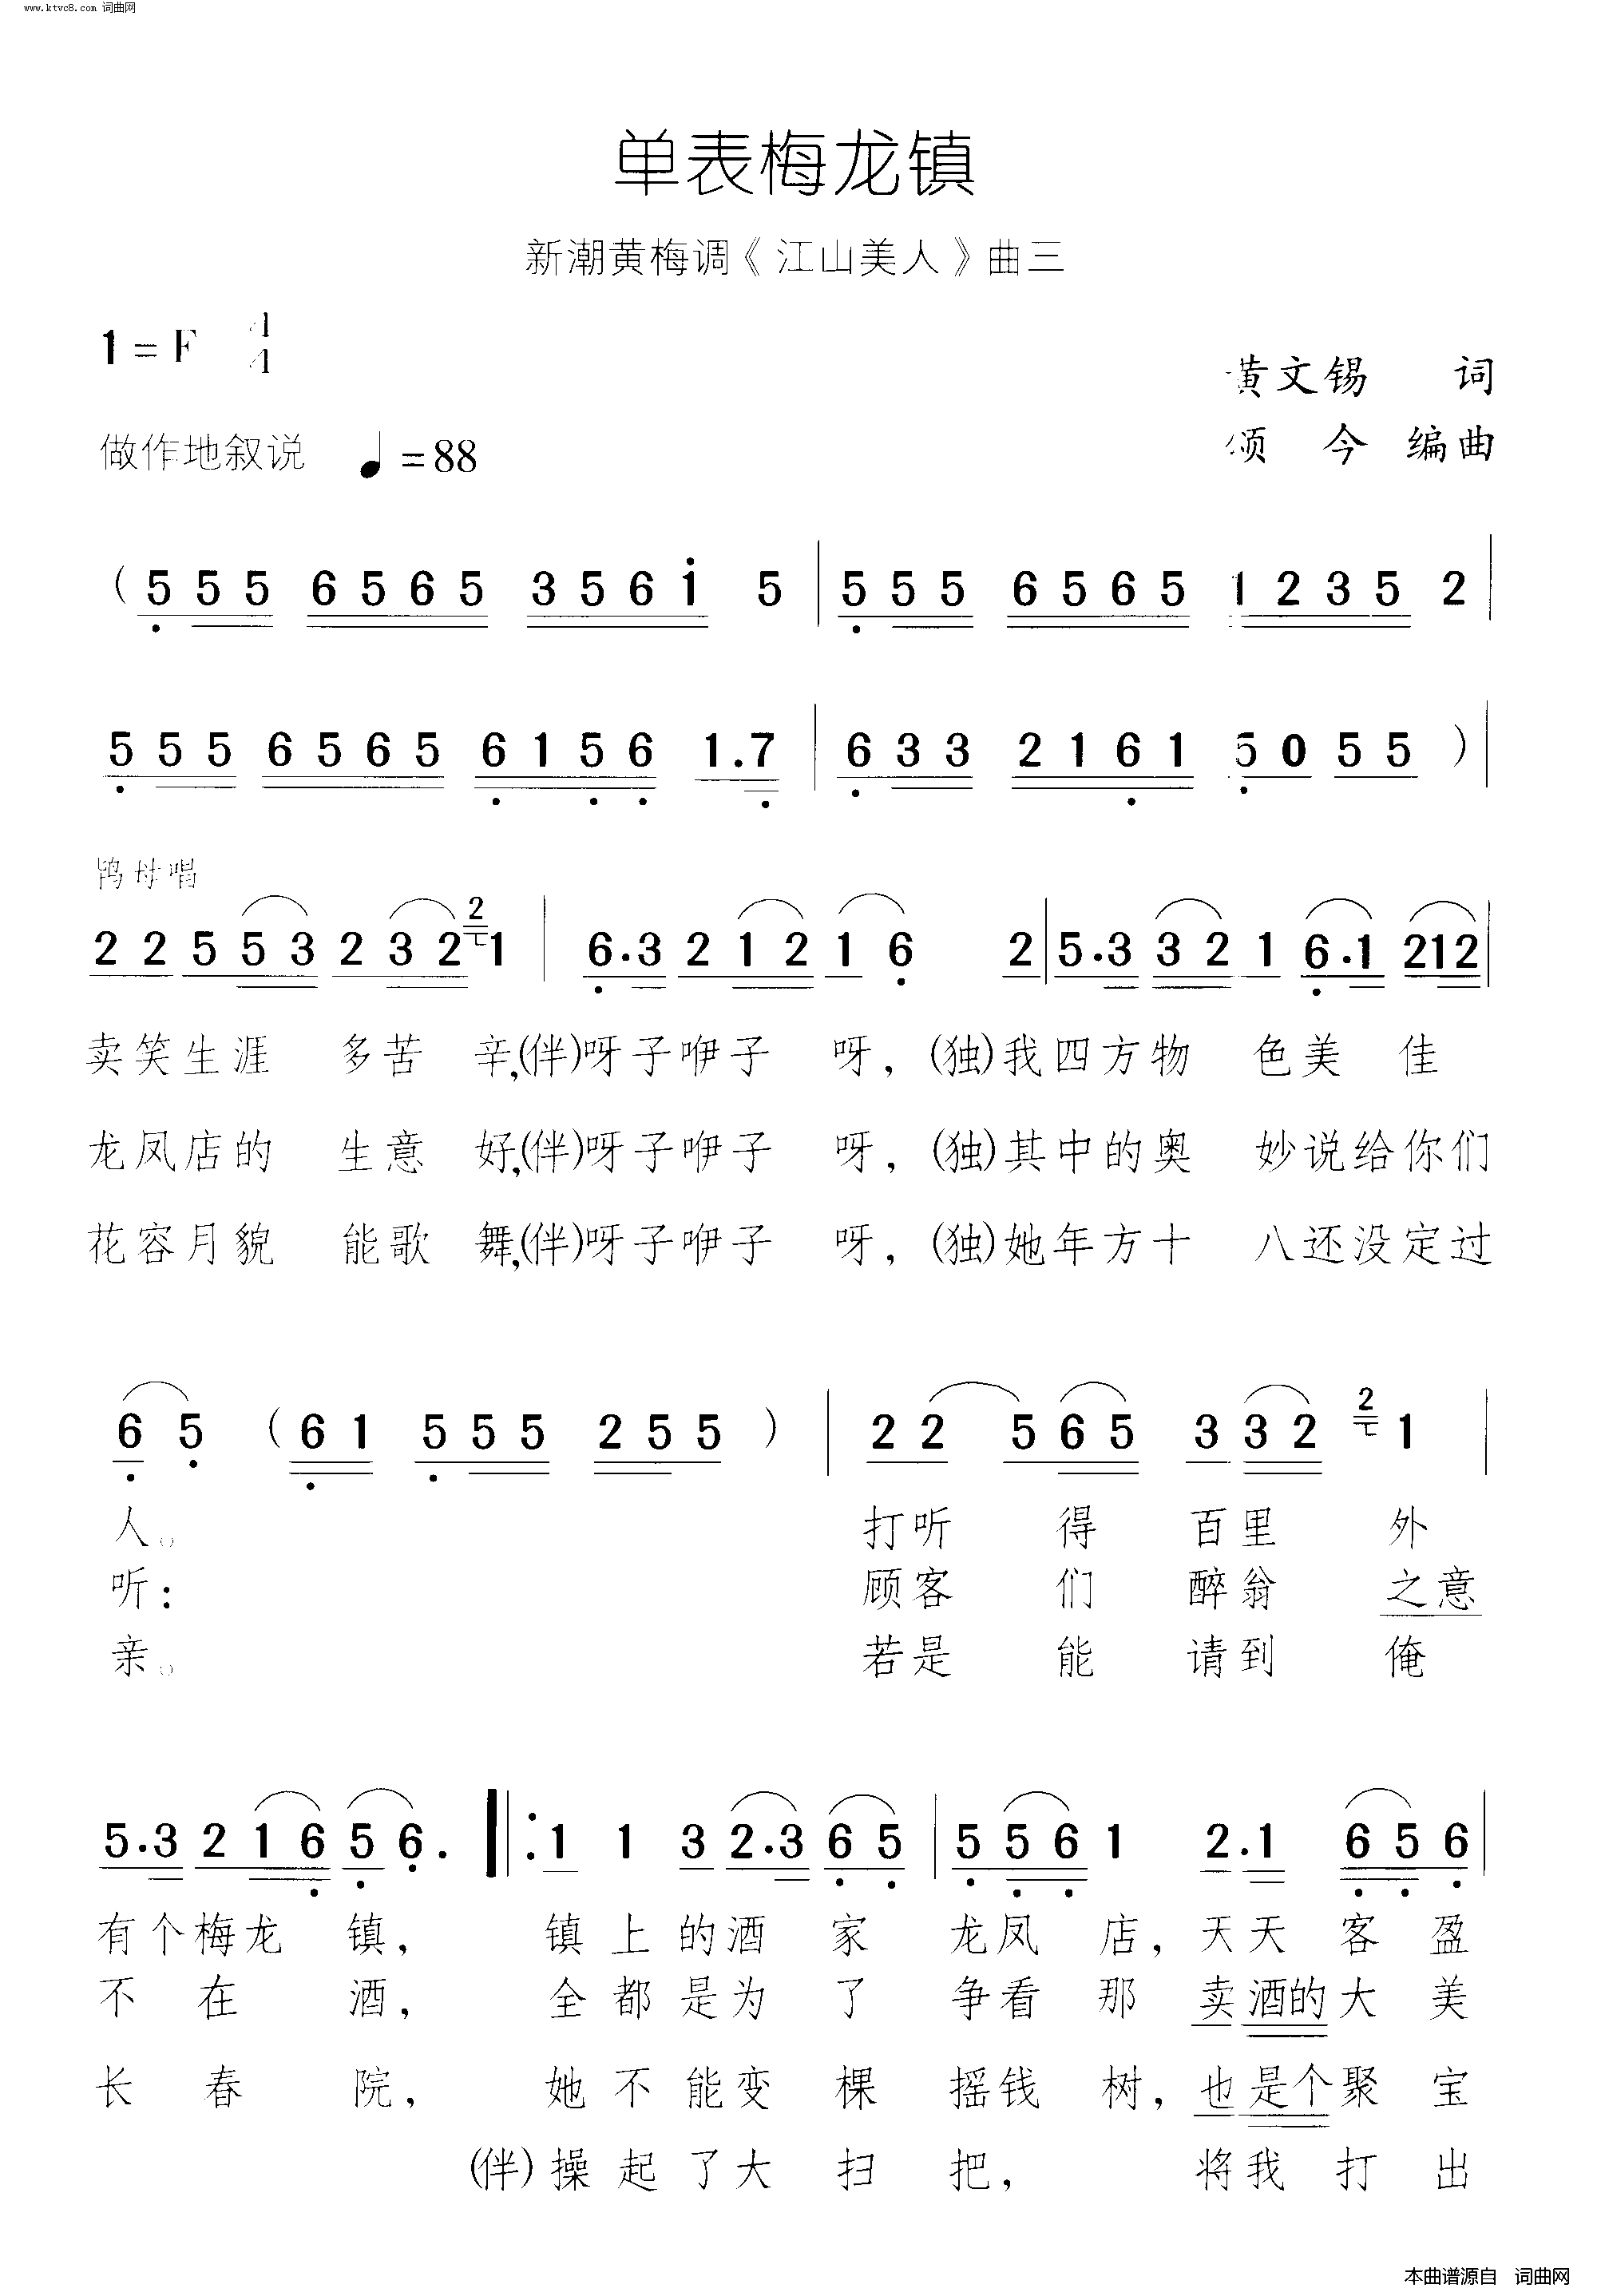 www.ktvc8.com 词曲网
单表梅龙镇
新潮黄梅调《江山美人》曲三
1=F 4/4
黄文锡 词
做作地叙说 ♩=88
颂 今 编曲
( 5 5 5 6 5 6 5 3 5 6 i 5 | 5 5 5 6 5 6 5 1 2 3 5 2 |
5 5 5 6 5 6 5 6 1 5 6 1.7 | 6 3 3 2 1 6 1 5 0 5 5 ) |
鸨母唱
2 2 5 5 3 2 3 2 2 1 | 6.3 2 1 2 1 6 2 | 5.3 3 2 1 6.1 2 1 2 |
卖笑生涯 多苦 辛,(伴)呀子咿子 呀，(独)我四方物 色美 佳
龙凤店的 生意 好,(伴)呀子咿子 呀，(独)其中的奥 妙说给你们
花容月貌 能歌 舞,(伴)呀子咿子 呀，(独)她年方十 八还没定过
6 5 ( 6 1 5 5 5 2 5 5 ) | 2 2 5 6 5 3 3 2 2 1 |
人。 打听 得 百里 外
听： 顾客 们 醉翁 之意
亲。 若是 能 请到 俺
5.3 2 1 6 5 6. ‖: 1 1 3 2.3 6 5 | 5 5 6 1 2.1 6 5 6 |
有个梅龙 镇， 镇上的酒 家 龙凤 店，天天 客 盈
不 在 酒， 全都是为 了 争看 那 卖酒的大 美
长 春 院， 她不能变 棵 摇钱 树，也是个聚 宝
(伴)操起了大 扫 把， 将我 打 出
本曲谱源自 词曲网